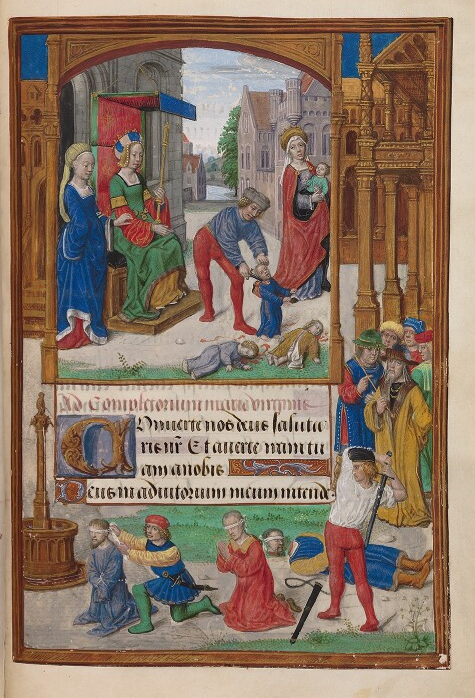 Ad Completorium marie virginis
Conuerte nos deus saluta
ris nr̄ Et auerte iram tu
am anobis
Deus in adiutorium meum intend